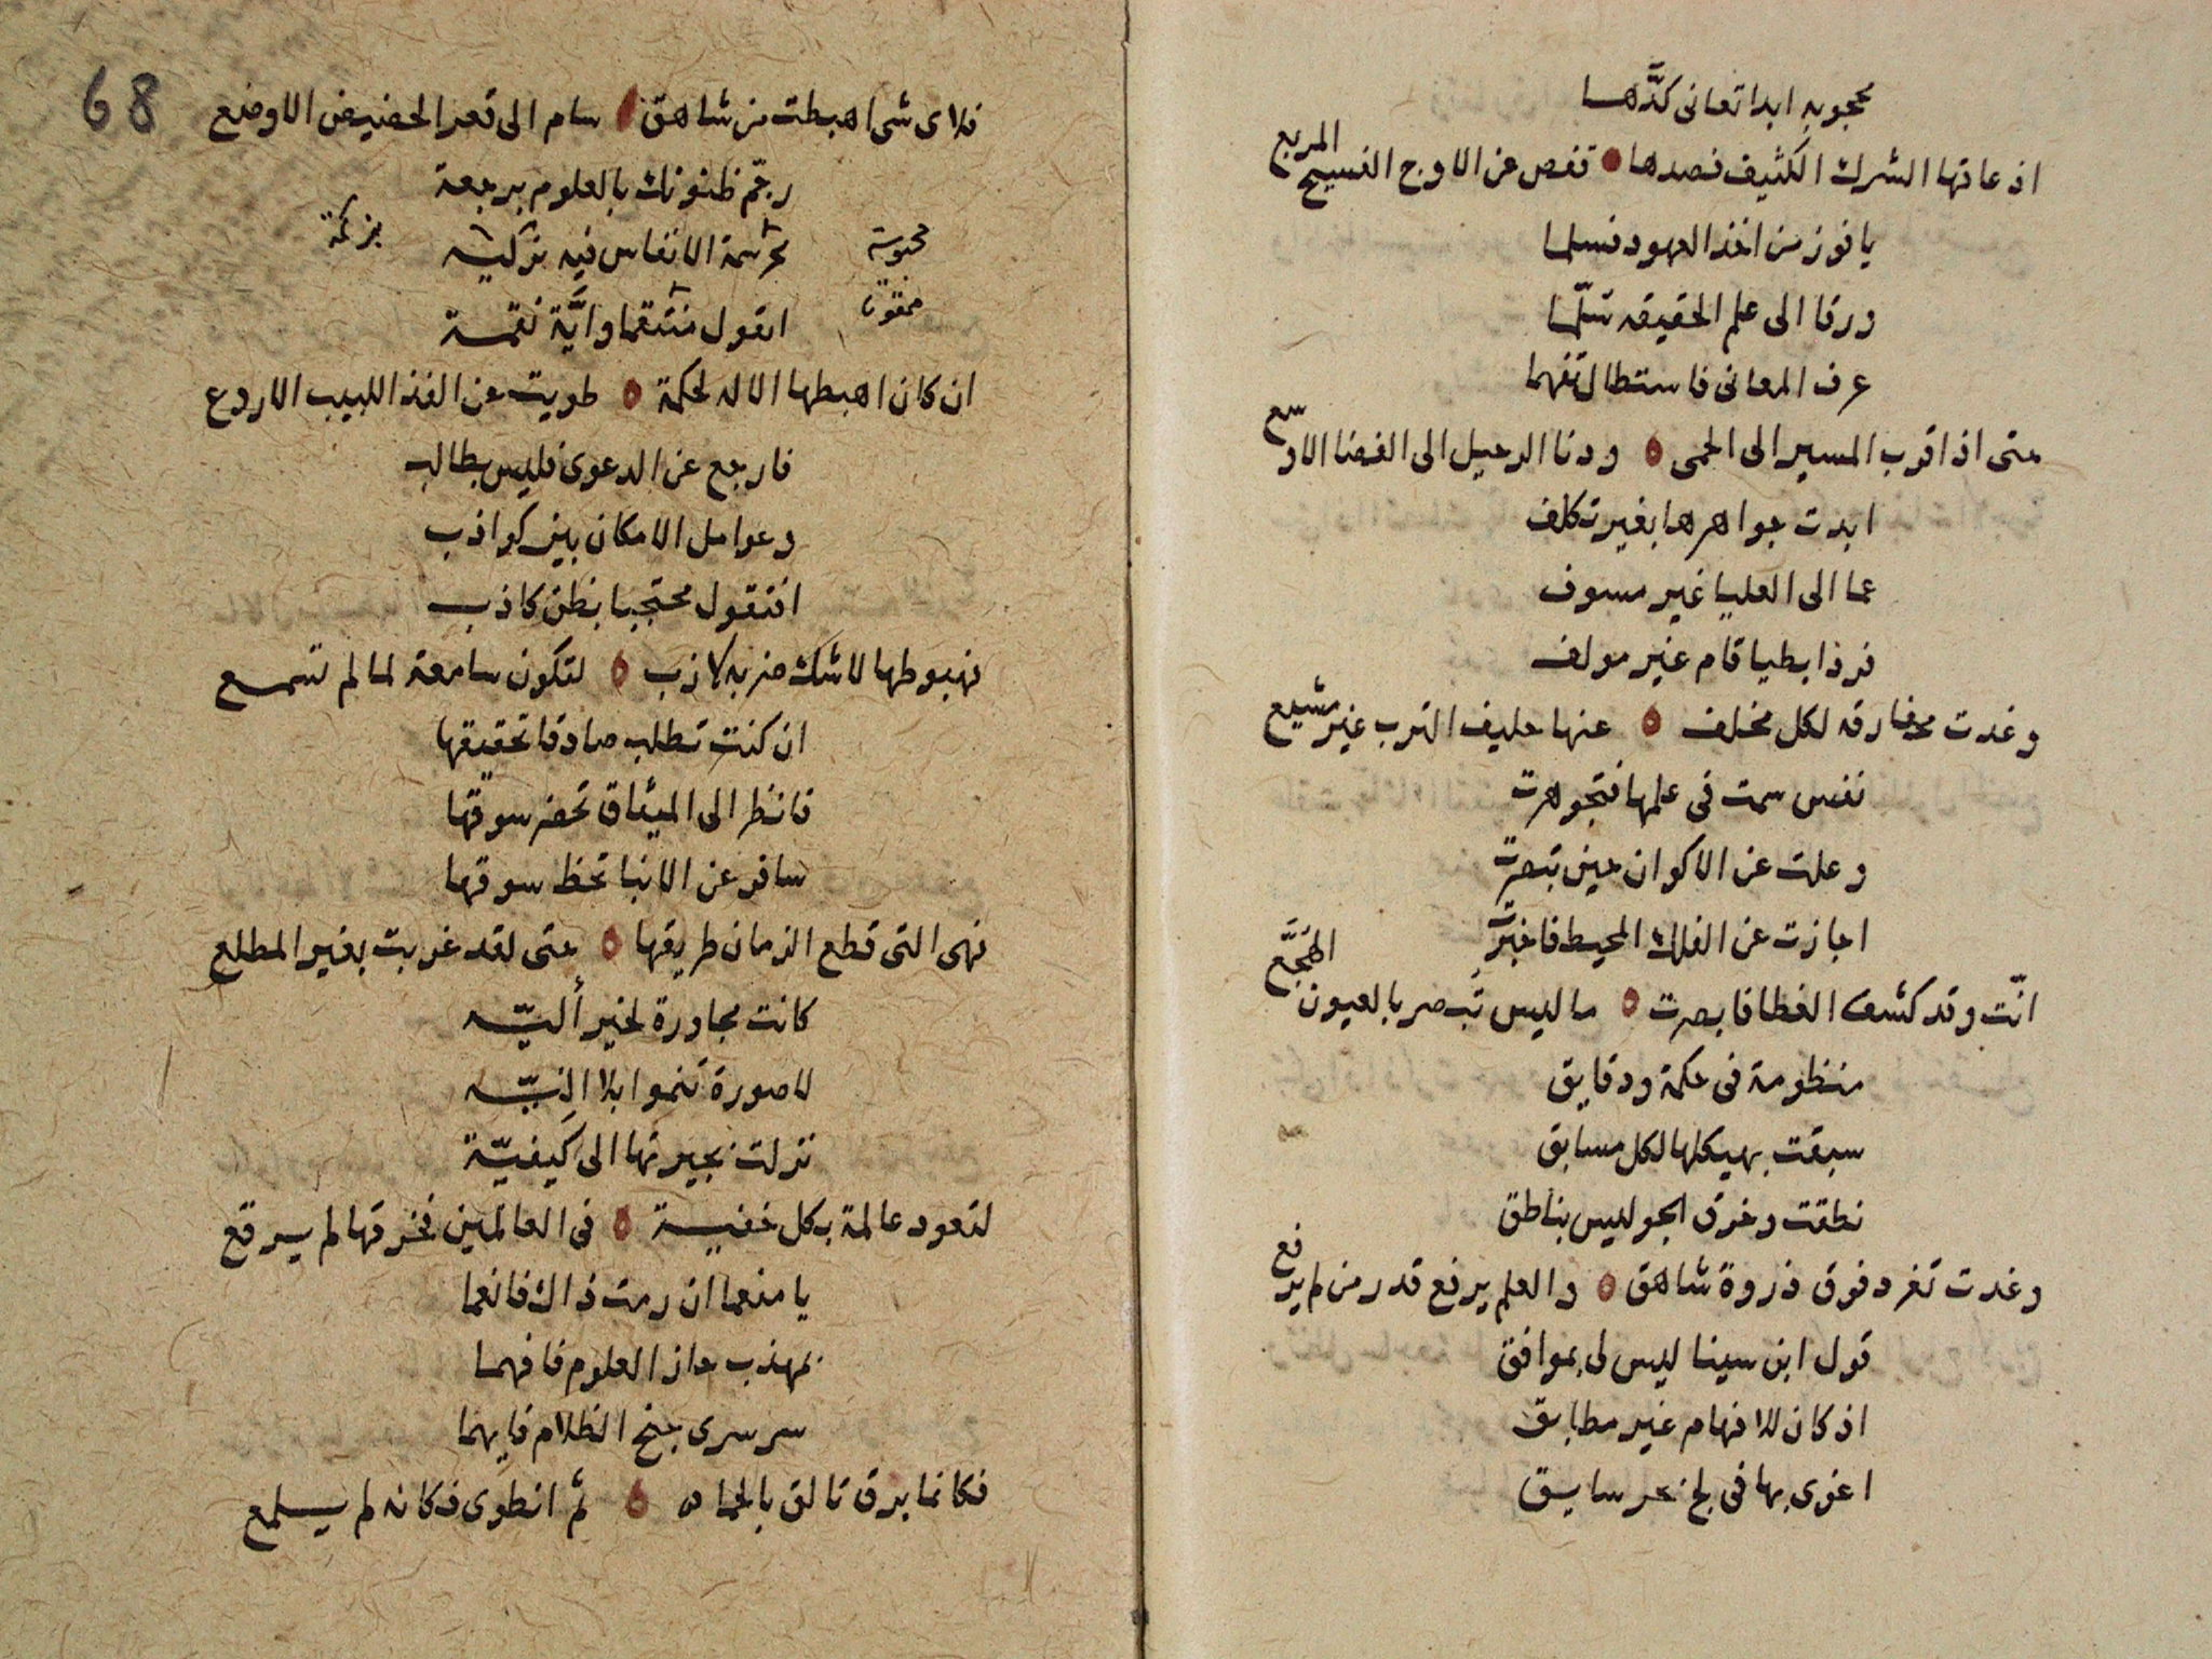 محجوبه ابدا تعانى كدَّها
اذ عاقها الشرك الكثيف فصدها ● قفص عن الاوج الفسيح المربع
يا فوز من اخذ العهود فسلما
ورقا الى علم الحقيقه سلّما
عرف المعانى فاستطال تفهما
حتى اذا قرب المسير الى الحمى ٥ ودنا الرحيل الى الفضا الاوسع
ابدت جواهرها بغير تكلف
عما الى العليا غير مسوف
فرذا بطيا قام غير مولف
وغدت مفارقه لكل مخلف ٥ عنها حليف الترب غير مشيع
نفس سمت فى علمها فتجوهرت
وعلت عن الاكوان حين تبصرت
اجازت عن الفلك المحيط فاخبرت
انّت وقد كشف الغطا فابصرت ٥ ما ليس تبصر بالعيون الهجَّع
منظومة فى حكمة ودقايق
سبقت بهيكلها لكل مسابق
نطقت وخرق الجو ليس بناطق
وغدت تغرد فوق ذروة شاهق ٥ والعلم يرفع قدر من لم يرفع
قول ابن سينا ليس لى بموافق
اذ كان للافهام غير مطابق
اغوى بها فى لج بحر سايق
68
فلاى شى اهبطت من شاهق ٥ سام الى قعر الحضيض الاوضع
رجّم ظنونك بالعلوم برجعة
محبوسة الانفاس فيه بزكيه
اتقول منتقما وايَّة نقمة
ان كان اهبطها الاله لحكمة ٥ طويت عن الفذ اللبيب الاروع
فارجع عن الدعوى فليس بطالب
وعوامل الامكان بين كواذب
افتقول محتجبا بظن كاذب
فهبوطها لا شك ضربه لازب ٥ لتكون سامعة لما لم تسمع
ان كنت تطلب صادقا تحقيقها
فانظر الى الميثاق تحضر سوقها
سافر عن الانبا تحظ سوقها
فهى التى قطع الزمان طريقها ٥ حتى لقد غربت بغير المطلع
كانت مجاورة لخير أليّه
لا صورة تنموا بلا اِنيّه
نزلت بجيرتها الى كَيفيّة
لتعود عالمة بكل خفية ٥ فى العالمين فخرقها لم يرقع
يا منعما ان رمت ذاك فانعما
بمهذب حاز العلوم فافهما
سر سرى جنح الظلام فابهما
فكانما برق تالق بالحما ٥ ثم انطوى فكانه لم يلمع